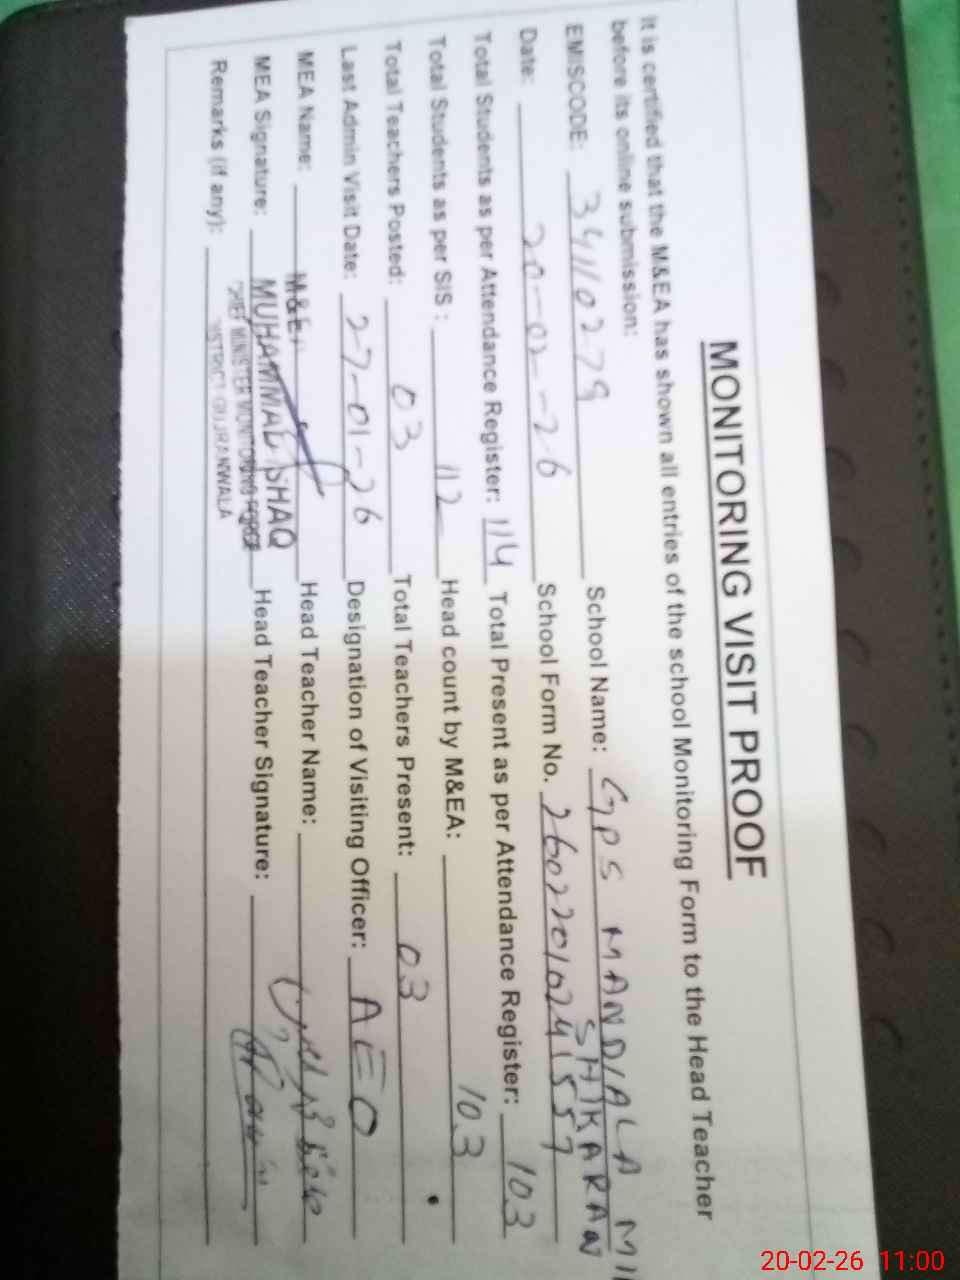 MONITORING VISIT PROOF
It is certified that the M&EA has shown all entries of the school Monitoring Form to the Head Teacher
before its online submission:
EMISCODE: 34110279 School Name: GPS MANDIALA
SHIKARAN
Date: 20-02-26 School Form No. 26022010241557
Total Students as per Attendance Register: 114 Total Present as per Attendance Register: 103
Total Students as per SIS: 112 Head count by M&EA: 103
Total Teachers Posted: 03 Total Teachers Present: 03
Last Admin Visit Date: 27-01-26 Designation of Visiting Officer: AEO
MEA Name: Head Teacher Name:
MEA Signature: MUHAMMAD ISHAQ Head Teacher Signature:
CHIEF MINISTER MONITORING FORCE
DISTRICT GUJRANWALA
Remarks (if any):
20-02-26 11:00